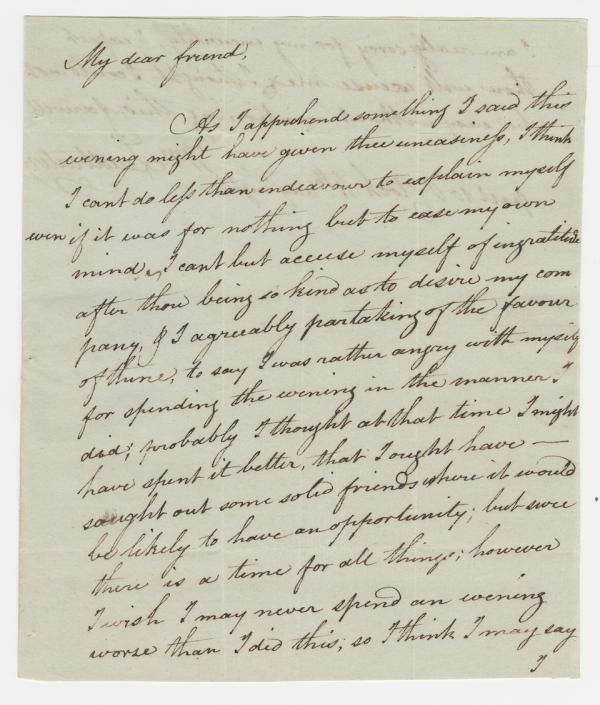 My dear friend,
As I apprehend something I said this
evening might have given thee uneasiness, I think
I cant do less than endeavour to explain myself
even if it was for nothing but to ease my own
mind, I cant but accuse myself of ingratitude
after thou being so kind as to desire my com
pany, & I agreeably partaking of the favour
of thine, to say I was rather angry with myself
for spending the evening in the manner I
did; probably I thought at that time I might
have spent it better, that I ought have —
saught out some solid friends where it would
be likely to have an opportunity; but sure
there is a time for all things; however
I wish I may never spend an evening
worse than I did this; so I think I may say
I